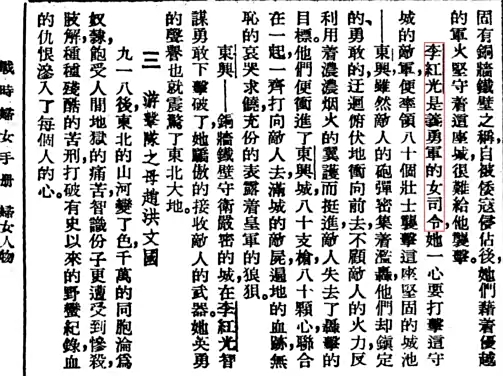 固有銅牆鐵壁之稱,自被倭寇侵佔後,她們藉着優越
的軍火堅守着這座城,很難給他襲擊。
李紅光是義勇軍的女司令,她一心要打擊這守
城的敵軍,便率領八十個壯士襲擊這座堅固的城池
——東興,雖然敵人的砲彈密集着濫轟,他們却鎮定
的勇敢的迂迴俯伏地衝向前去,不顧敵人的火力,反
利用着濃濃烟火的翼護而挺進,敵人失去了轟擊的
目標,他們便衝進了東興城,八十支槍,八十顆心聯合
在一起,一齊打向敵人去,滿城的敵屍,遍地的血跡,無
恥的哀哭求饒,充份的表露着皇軍的狼狽。
東興——銅牆鐵壁,守衛嚴密的城,在李紅光智
謀勇敢下擊破了,她驕傲的接收敵人的武器,她英勇
的聲譽也就震驚了東北大地。
三 游擊隊之母趙洪文國
九一八後,東北的山河變了色,千萬的同胞淪為
奴隸,飽受人間地獄的痛苦,智識份子更遭受到慘殺,
肢解種種殘酷的苦刑,打破有史以來的野蠻紀錄,血
的仇恨滲入了每個人的心。
戰時婦女手册 婦女人物